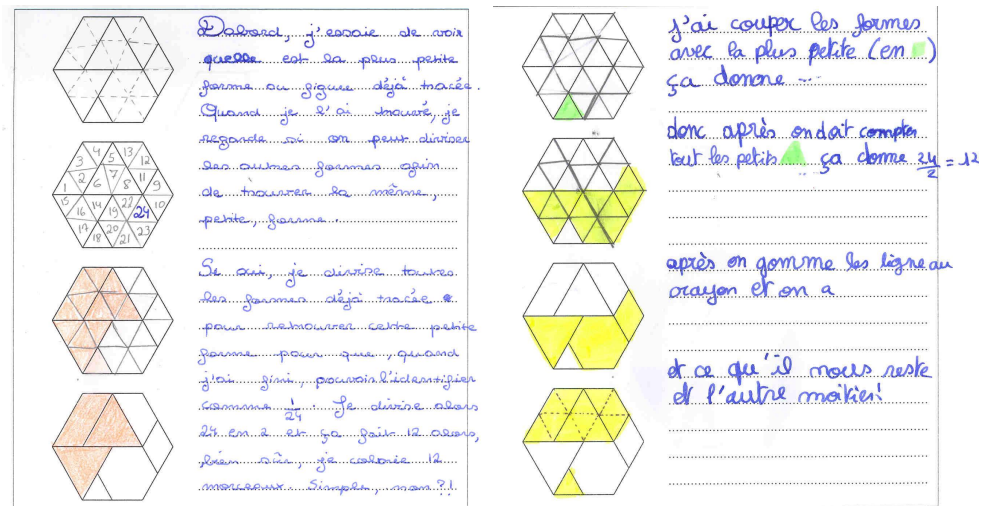 D'abord, j'essaie de voir
quelle est la plus petite
forme ou figure déjà tracée.
Quand je l'ai trouvé, je
regarde si on peut diviser
les autres formes afin
de trouver la même,
petite, forme.
Si oui, je divise toutes
les formes déjà tracée
pour retrouver cette petite
forme pour que, quand
j'ai fini, pouvoir l'identifier
comme 1/24. Je divise alors
24 en 2 et ça fait 12 alors,
bien sûr, je colorie 12
morceaux. Simple, non ?!
3 4 5 13 12
1 2 6 7 8 11 9
15 16 14 19 22 24 10
17 18 20 21 23
j'ai couper les formes
avec la plus petite (en )
ça donne ...
donc après on doit compter
tout les petits ça donne 24/2 = 12
après on gomme les ligne au
crayon et on a
et ce qu'il nous reste
et l'autre moitier!